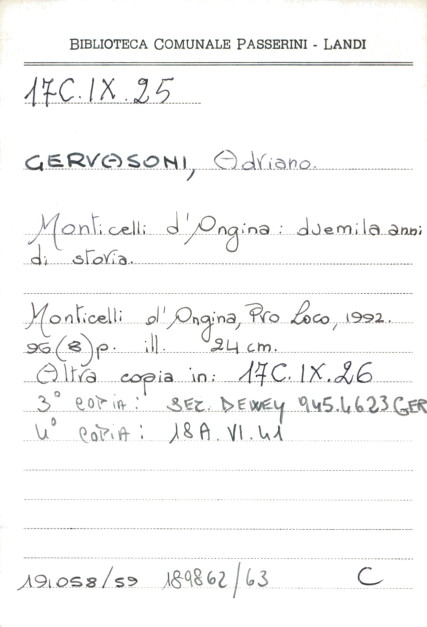 BIBLIOTECA COMUNALE PASSERINI - LANDI
17C.IX.25
GERVASONI, Adriano.
Monticelli d'Ongina: duemila anni
di storia.
Monticelli d'Ongina, Pro Loco, 1992.
96(8)p. ill. 24 cm.
Altra copia in: 17C.IX.26
3° COPIA: SEZ. DEWEY 945.4623 GER
4° COPIA: 18A.VI.41
191.058/59 189862/63 C